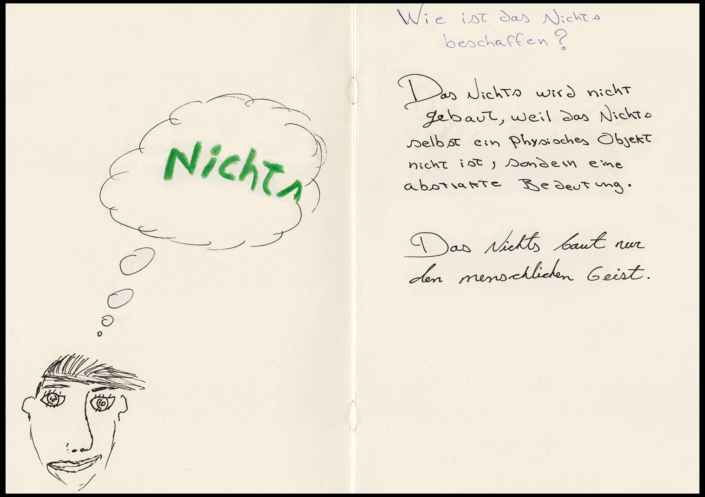 Nichts
Wie ist das Nichts
beschaffen?
Das Nichts wird nicht
gebaut, weil das Nichts
selbst ein physisches Objekt
nicht ist, sondern eine
abstrakte Bedeutung.
Das Nichts baut nur
den menschlichen Geist.